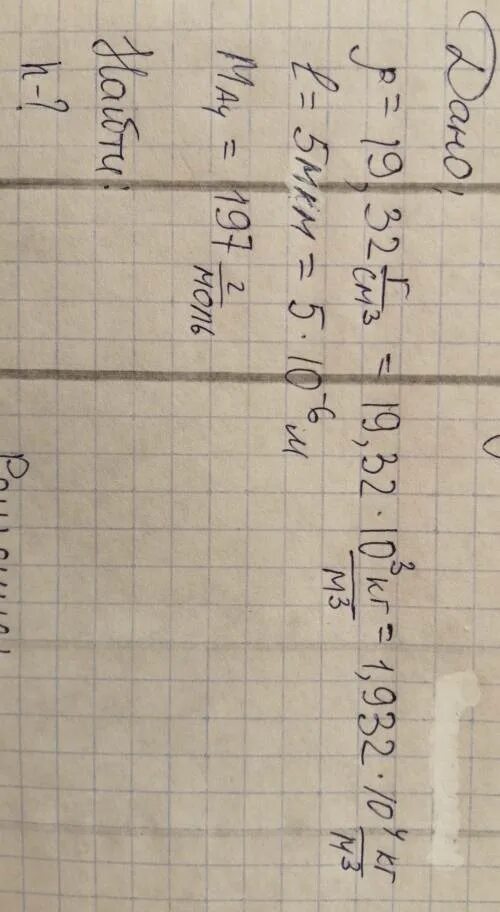 Дано:
ρ = 19,32 г/см³ = 19,32 · 10³ кг/м³ = 1,932 · 10⁴ кг/м³
ℓ = 5 мкм = 5 · 10⁻⁶ м
M Au = 197 г/моль
Найти:
n - ?